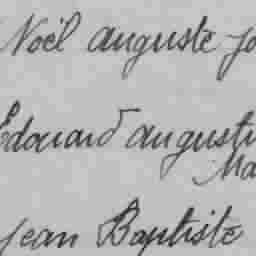 Noël auguste Jo
Edouard augusti
Ma
Jean Baptiste